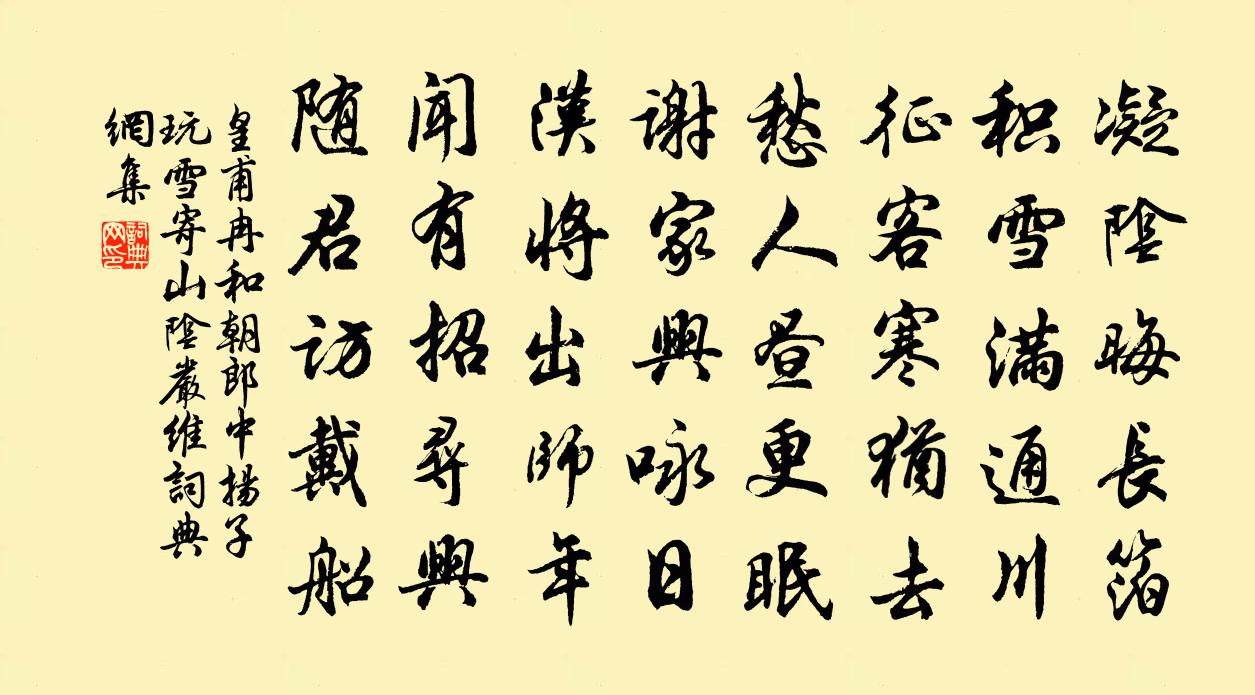 凝陰晦長箔
积雪满通川
征客寒猶去
愁人昼更眠
謝家興咏日
漢將出師年
闻有招尋興
随君访戴船
皇甫冉和朝郎中揚子
玩雪寄山陰嚴维詞典
網集
詞典
网印